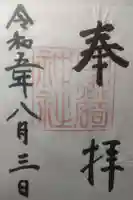 奉拝
令和五年八月三日